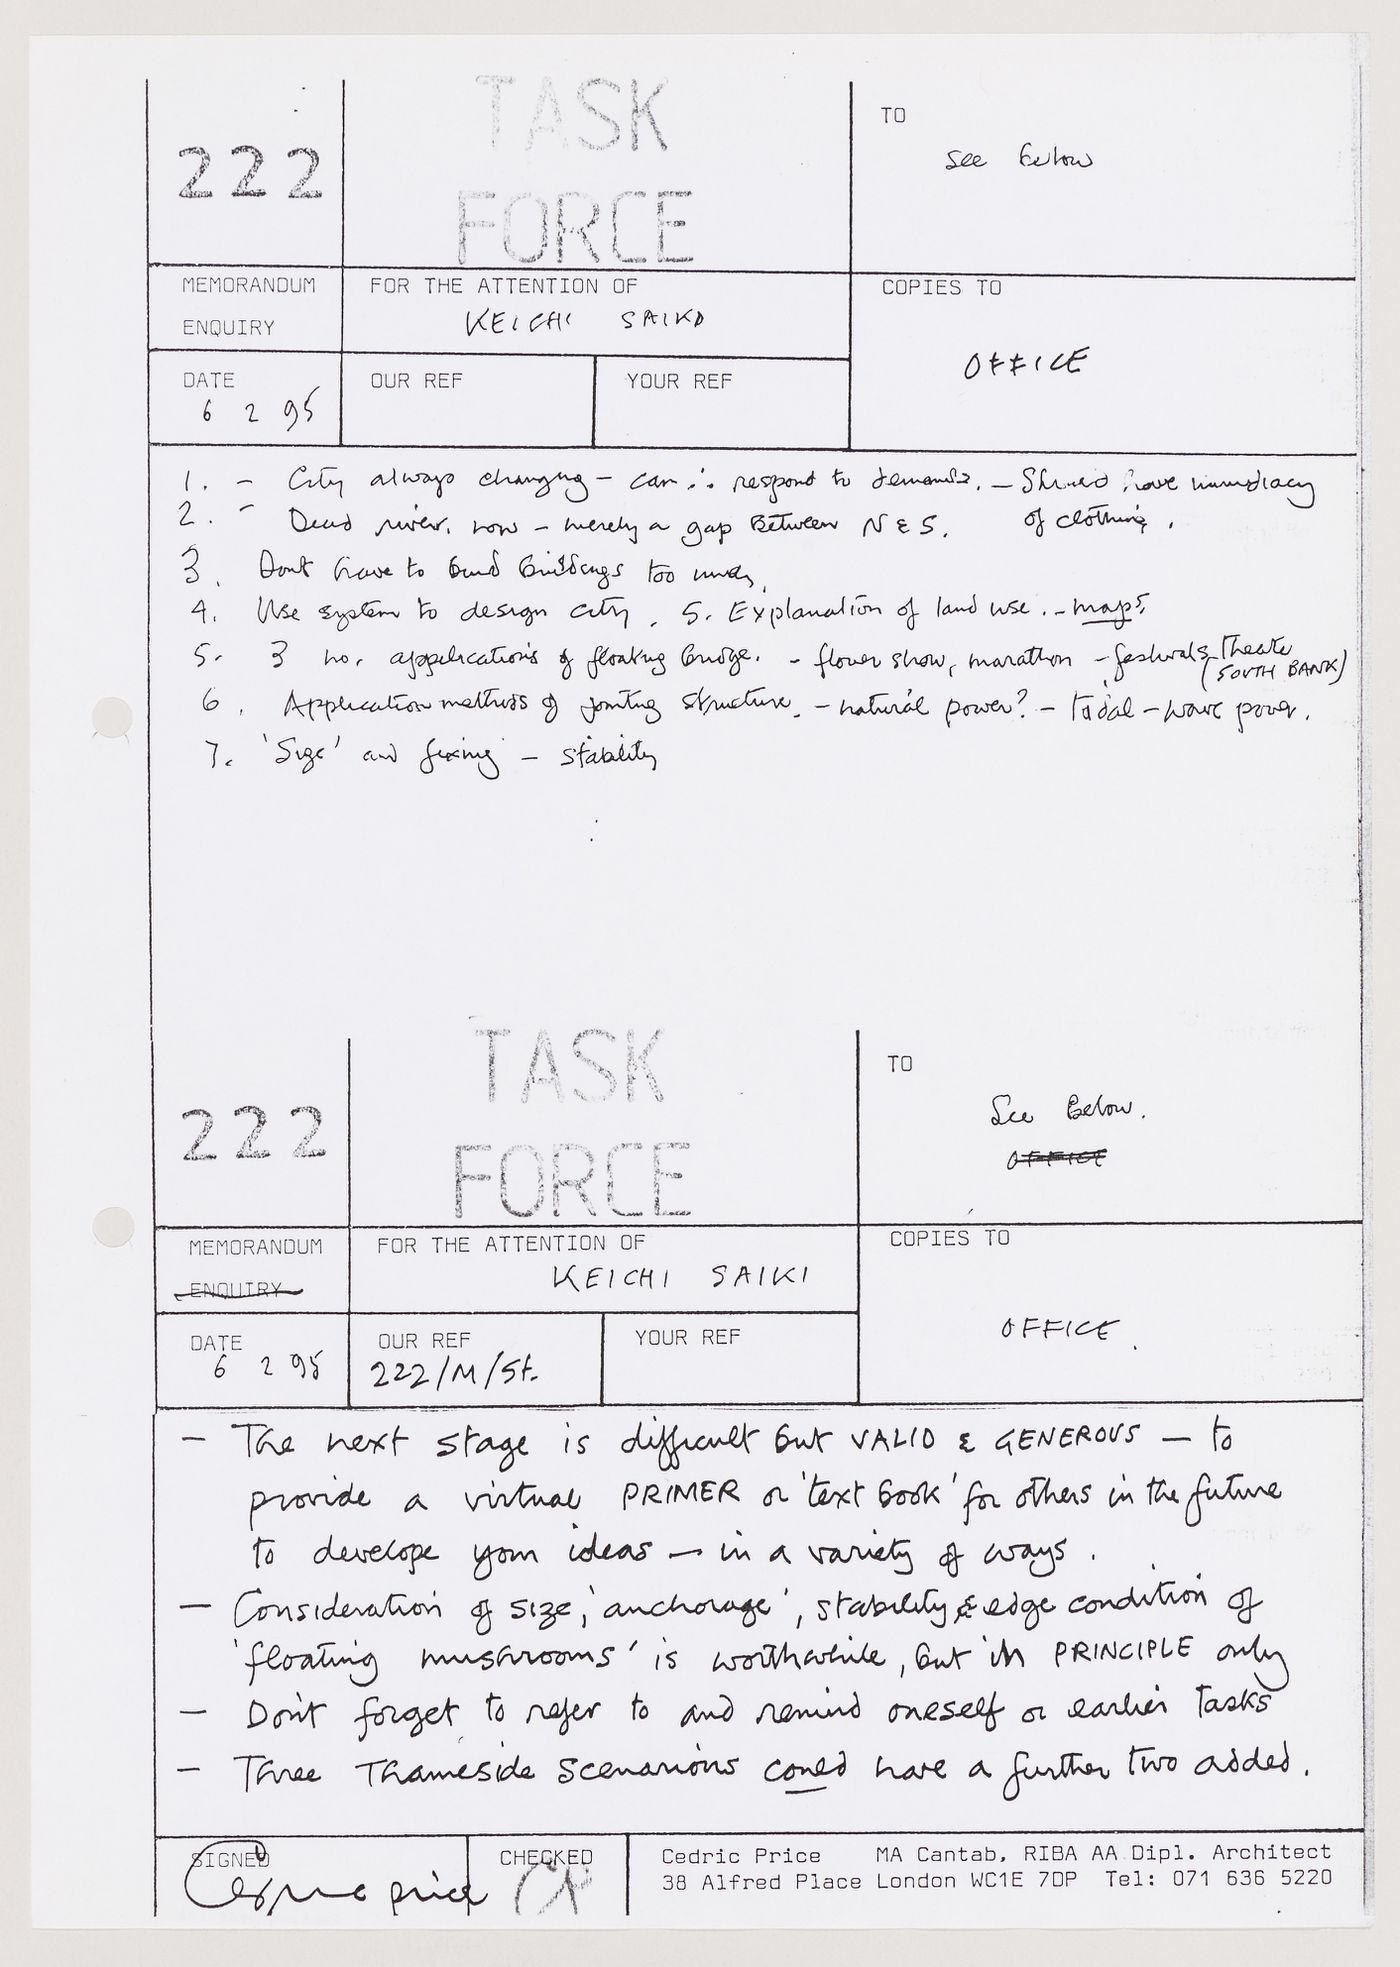 222
TASK
FORCE
TO
See below
MEMORANDUM
ENQUIRY
FOR THE ATTENTION OF
KEICHI SAIKO
COPIES TO
OFFICE
DATE
6 2 95
OUR REF
YOUR REF
1. – City always changing – can ∴ respond to demands. – Should have immediacy
of clothing.
2. – Dead river. now – merely a gap Between N & S.
3. Dont have to build buildings too much.
4. Use system to design city. 5. Explanation of land use. – maps.
5. 3 no. applications of floating bridge. – flower show, marathon – festivals – Theatre
(SOUTH BANK)
6. Application methods of jointing structure. – natural power? – tidal – wave power.
7. 'Size' and fixing – stability
222
TASK
FORCE
TO
See Below.
OFFICE
MEMORANDUM
ENQUIRY
FOR THE ATTENTION OF
KEICHI SAIKI
COPIES TO
OFFICE.
DATE
6 2 95
OUR REF
222/M/St.
YOUR REF
– The next stage is difficult but VALID & GENEROUS – to
provide a virtual PRIMER or 'text book' for others in the future
to develope your ideas – in a variety of ways.
– Consideration of size, 'anchorage', stability & edge condition of
'floating mushrooms' is worthwhile, but in PRINCIPLE only
– Don't forget to refer to and remind oneself or earlier Tasks
– Three Thameside Scenarios could have a further two added.
SIGNED
Cedric Price
CHECKED
CP
Cedric Price MA Cantab, RIBA AA Dipl. Architect
38 Alfred Place London WC1E 7DP Tel: 071 636 5220